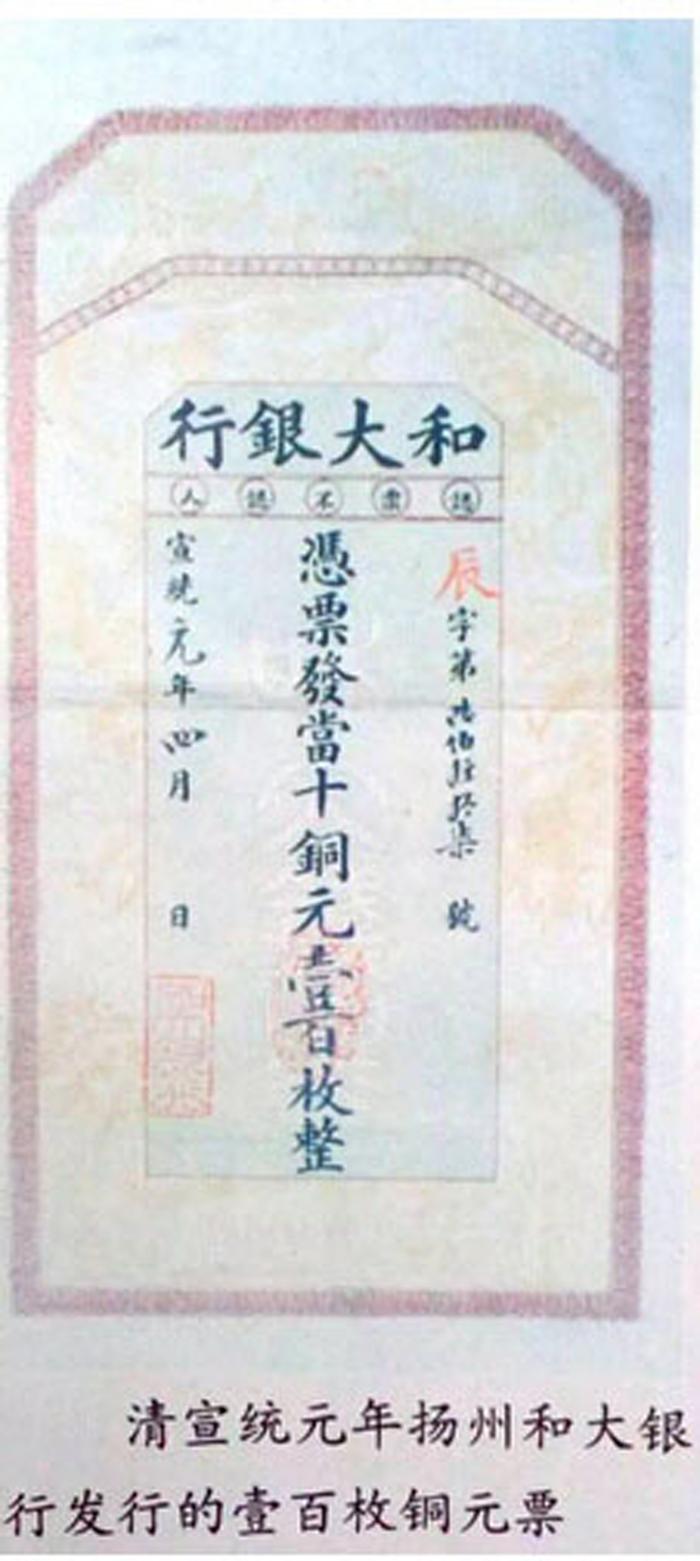 和大銀行
認票不認人
辰字第 號
憑票發當十銅元壹百枚整
宣統元年四月 日
清宣统元年扬州和大银
行发行的壹百枚铜元票